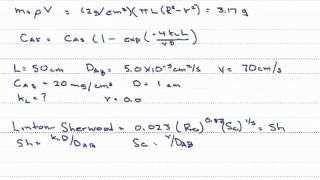 m = ρV = (2g/cm³)(πL(R²-r²) = 3.17 g
C_AL = C_AS (1 - exp(-4k_L L / vD)
L = 50cm D_AB = 5.0×10⁻⁵ cm²/s v = 70cm/s
C_AS = 20 mg/cm³ D = 1 cm
k_L = ? r = 0.0
Linton Sherwood = 0.023 (Re)^0.83 (Sc)^1/3 = Sh
Sh = k_L D/D_AB Sc = ν/D_AB